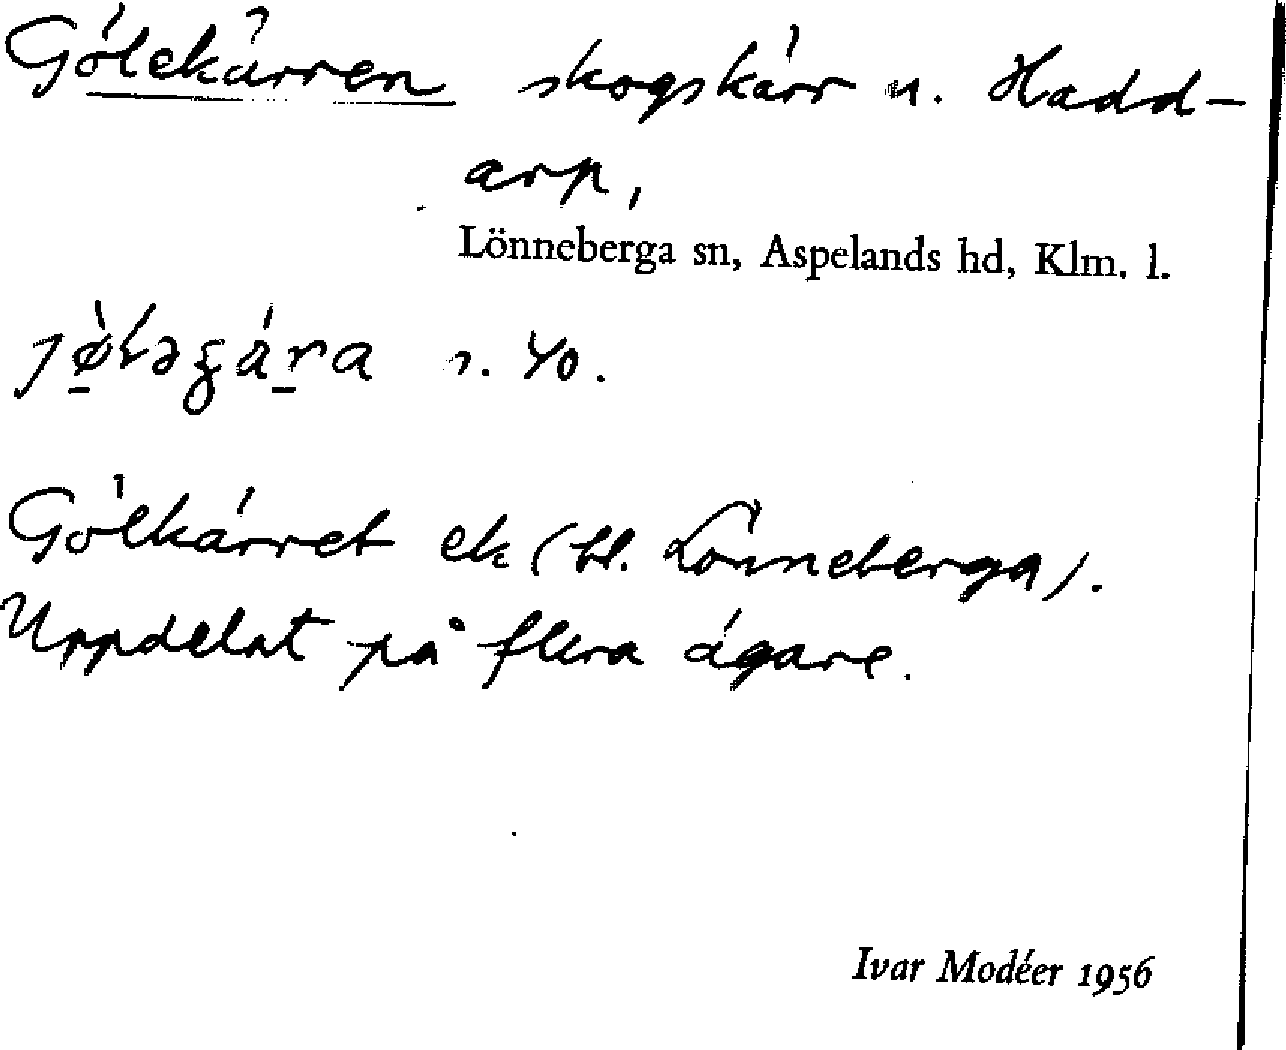 Gölekärren skogskärr u. Hadd-
arp,
Lönneberga sn, Aspelands hd, Klm. l.
40.
Gölkärret ek (bl. Lönneberga).
Uppdelat på flera ägare.
Ivar Modéer 1956